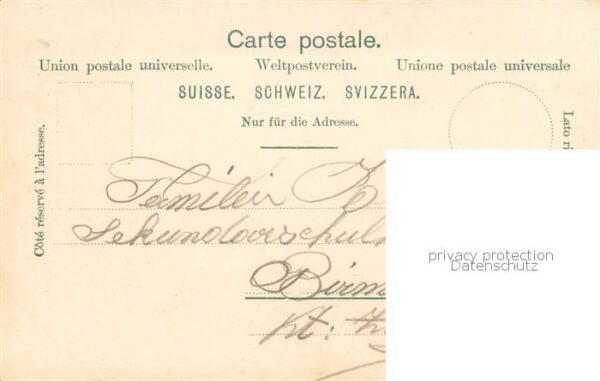 Carte postale.
Union postale universelle. Weltpostverein. Unione postale universale
SUISSE. SCHWEIZ. SVIZZERA.
Nur für die Adresse.
Côté réservé à l'adresse.
Lato ri
Familie
Sekundarschul
Birm
Kt:
privacy protection
Datenschutz